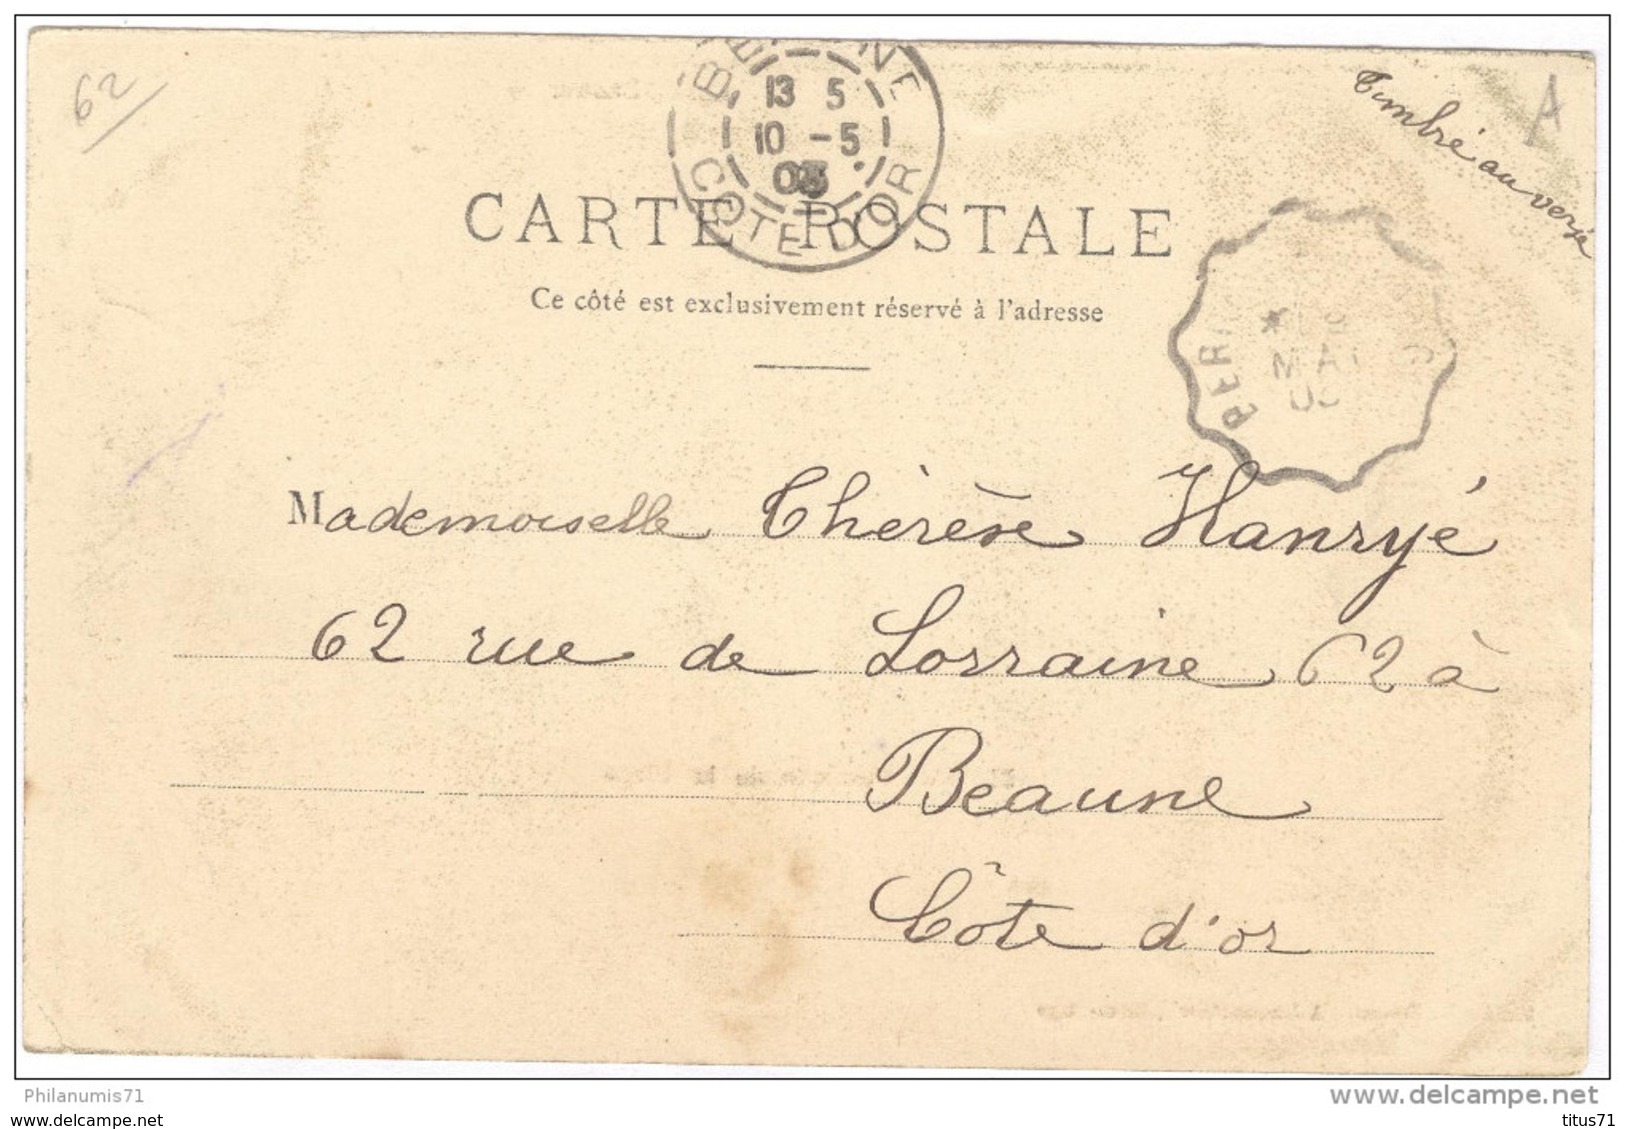 62
BE NE
13 5
10 -5
03
COTE D'OR
A
Timbré au verso
CARTE POSTALE
Ce côté est exclusivement réservé à l'adresse
PERI
MAI
Mademoiselle Thérèse Hanryé
62 rue de Lorraine 62 à
Beaune
Côte d'or
Philanumis71
www.delcampe.net
titus71
titus71